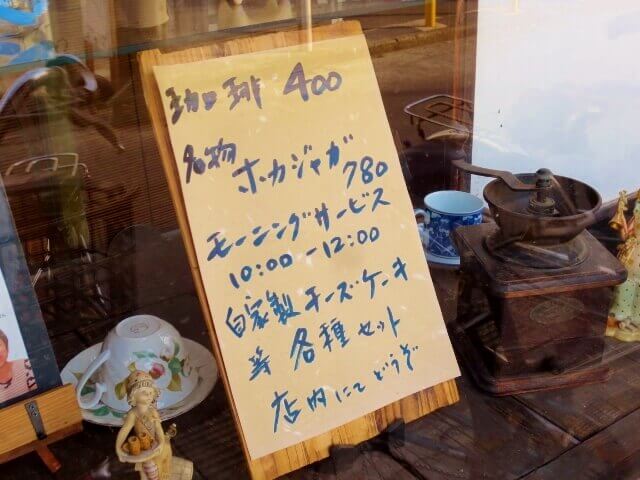 珈琲 400
名物 ホカジャガ
780
モーニングサービス
10:00-12:00
自家製チーズケーキ
等 各種セット
店内にてどうぞ